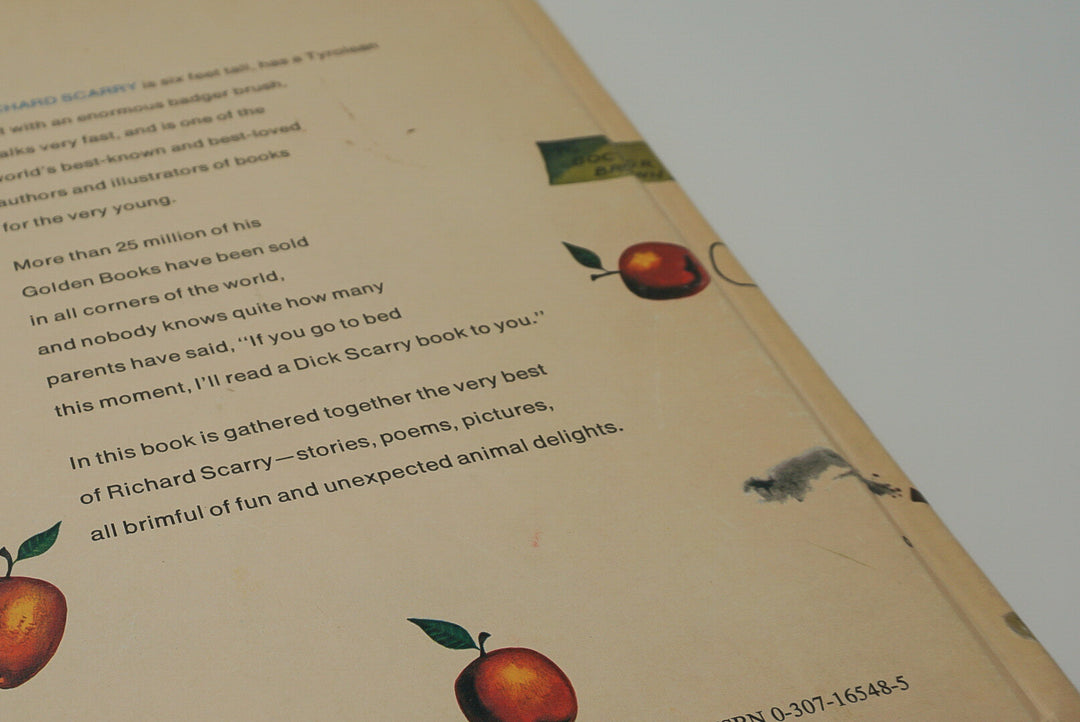 CHARD SCARRY is six feet tall, has a Tyrolean
with an enormous badger brush,
alks very fast, and is one of the
world's best-known and best-loved
authors and illustrators of books
for the very young.
More than 25 million of his
Golden Books have been sold
in all corners of the world,
and nobody knows quite how many
parents have said, “If you go to bed
this moment, I’ll read a Dick Scarry book to you.”
In this book is gathered together the very best
of Richard Scarry—stories, poems, pictures,
all brimful of fun and unexpected animal delights.
DOC
BROWN
ISBN 0-307-16548-5